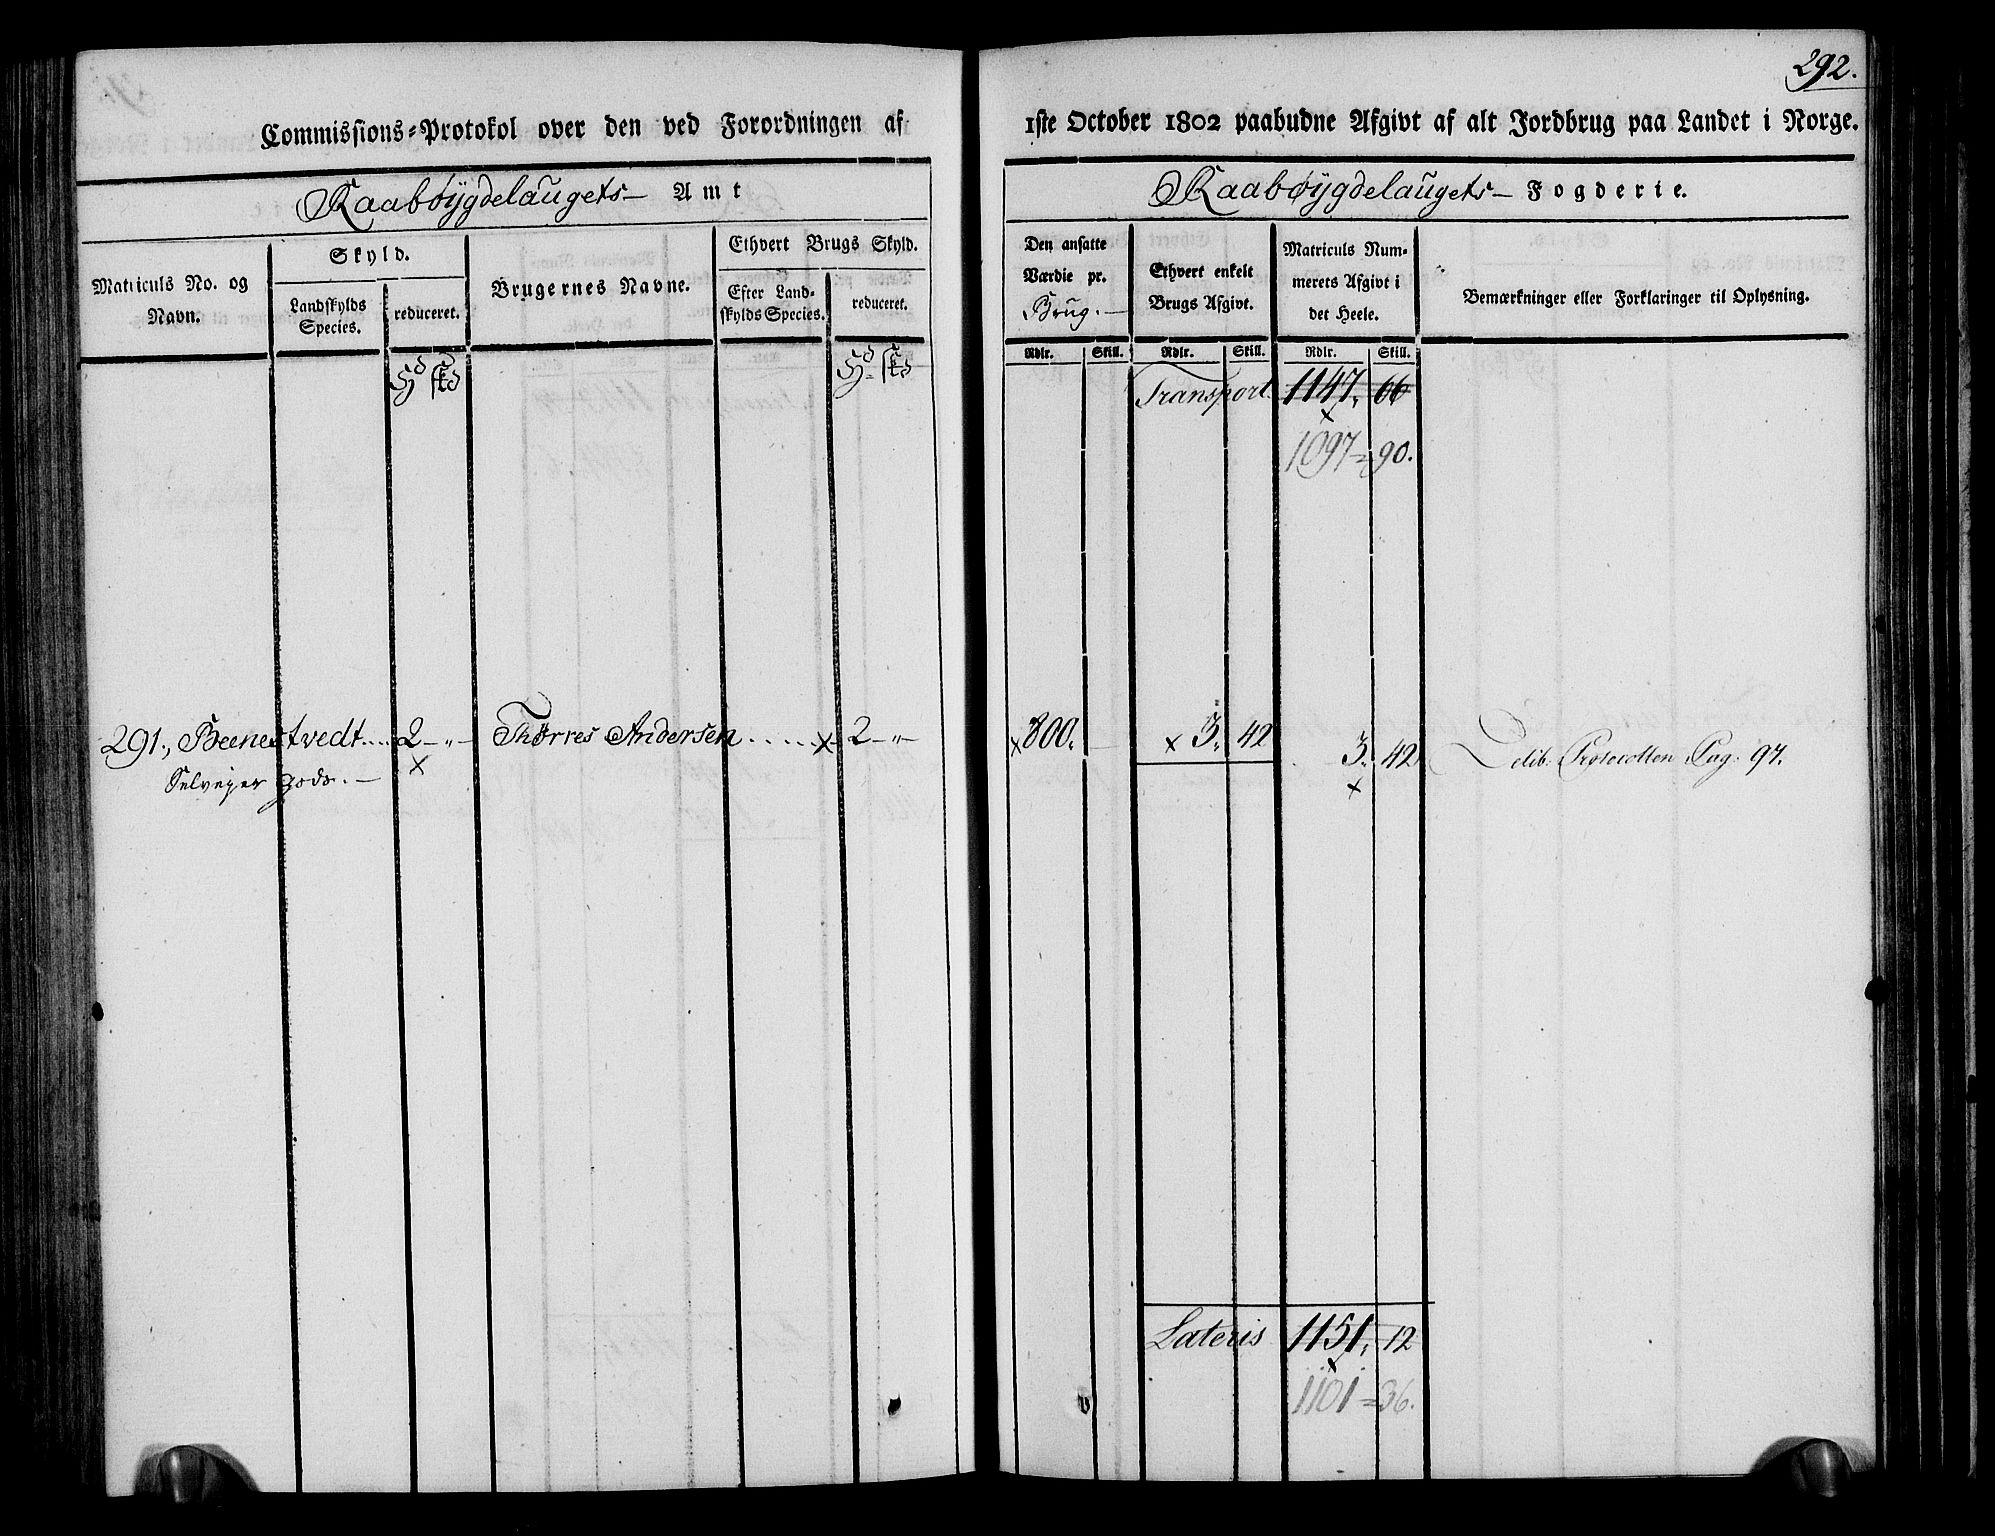 292.
Commissions-Protokol over den ved Forordningen af
1ste October 1802 paabudne Afgivt af alt Jordbrug paa Landet i Norge.
Raabøÿgdelaugets Amt
Raabøÿgdelaugets Fogderie.
Matriculs No. og Navn.
Skyld.
Landskylds Species.
reduceret.
Brugernes Navne.
Ethvert Brugs Skyld.
Efter Landskylds Species.
reduceret.
Den ansatte Værdie pr. Brug.
Ethvert enkelt Brugs Afgivt.
Matriculs Nummerets Afgivt i det Heele.
Bemærkninger eller Forklaringer til Oplysning.
Rdlr. Skill. Rdlr. Skill. Rdlr. Skill.
Hd skd
Hd skd
Transport 1147. 66
1097 = 90.
291., Beenestvedt.... 2 - „ - Thorres Andersen ..... x 2 - „ - x 800. - x 3. 42 3. 42 Delib: Protocollen Pag: 97.
Selveyer gods. - x x
Lateris 1151. 12
x
1101 = 36.